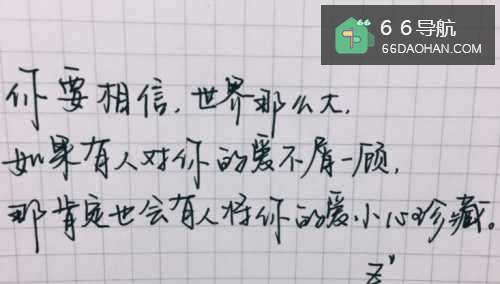 66导航
66DAOHAN.COM
你要相信，世界那么大，
如果有人对你的爱不屑一顾，
那肯定也会有人将你的爱小心珍藏。